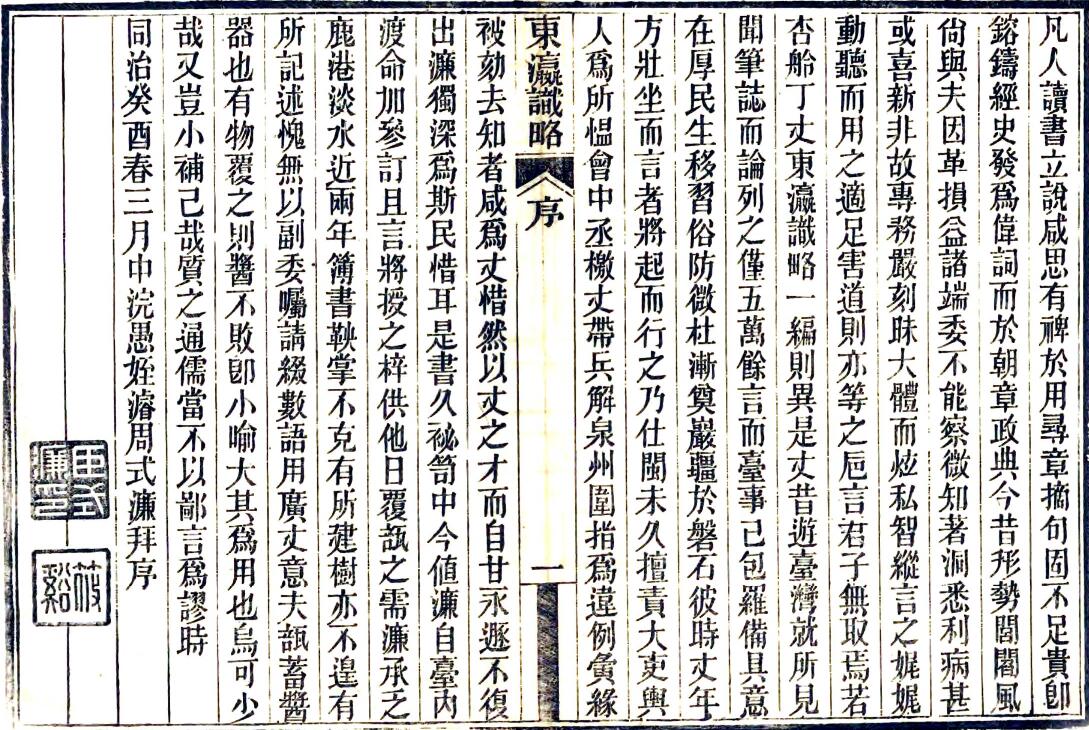 凡人讀書立說咸思有裨於用尋章摘句固不足貴卽
鎔鑄經史發爲偉詞而於朝章政典今昔形勢閭閻風
尙與夫因革損益諸端委不能察微知著洞悉利病甚
或喜新非故專務嚴刻昧大體而炫私智縱言之娓娓
動聽而用之適足害道則亦等之巵言君子無取焉若
杏舲丁丈東瀛識略一編則異是丈昔遊臺灣就所見
聞筆誌而論列之僅五萬餘言而臺事已包羅備具意
在厚民生移習俗防微杜漸奠巖疆於磐石彼時丈年
方壯坐而言者將起而行之乃仕閩未久擅責大吏輿
人爲所慍會中丞檄丈帶兵解泉州圍指爲違例夤緣
東瀛識略 序 一
被劾去知者咸爲丈惜然以丈之才而自甘永遯不復
出濂獨深爲斯民惜耳是書久祕笥中今値濂自臺內
渡命加參訂且言將授之梓供他日覆瓿之需濂承乏
鹿港淡水近兩年簿書鞅掌不克有所建樹亦不遑有
所記述愧無以副委囑請綴數語用廣丈意夫瓿蓄醬
器也有物覆之則醬不敗卽小喻大其爲用也烏可少
哉又豈小補已哉質之通儒當不以鄙言爲謬時
同治癸酉春三月中浣愚姪濬周式濂拜序
周式濂印